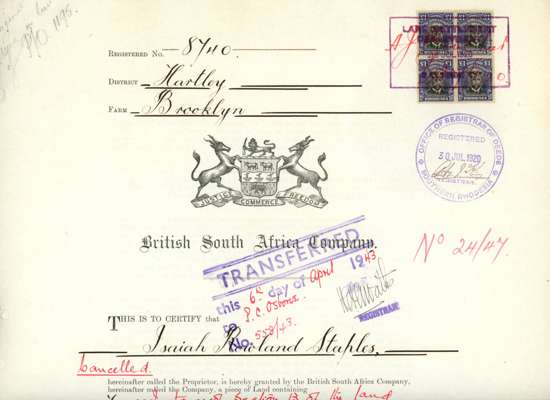 REGISTERED No. 8740
DISTRICT Hartley
FARM Brooklyn
£1 £1
£1 £1
OFFICE OF REGISTRAR OF DEEDS
REGISTERED
30 JUL. 1920
REGISTRAR.
SOUTHERN RHODESIA
JUSTICE COMMERCE FREEDOM
British South Africa Company.
No 24/47.
TRANSFERRED
this 6th day of April 1943
to P.C. Osborne
No. 558/43.
REGISTRAR
THIS IS TO CERTIFY that
Isaiah Rowland Staples,
Cancelled
hereinafter called the Proprietor, is hereby granted by the British South Africa Company,
hereinafter called the Company, a piece of Land containing